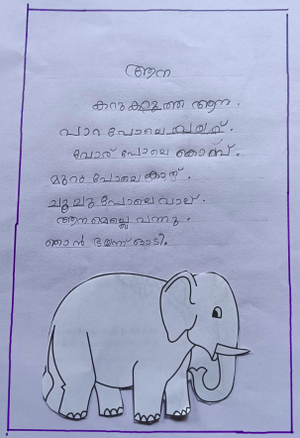 ആന
കറുകറുത്ത ആന.
പാറ പോലെ വയറ്.
വേര് പോലെ കൊമ്പ്.
മുറം പോലെ കാത്.
ചൂല് പോലെ വാല്.
ആന മെല്ലെ വന്നു.
ഞാൻ ഭയന്ന് ഓടി.